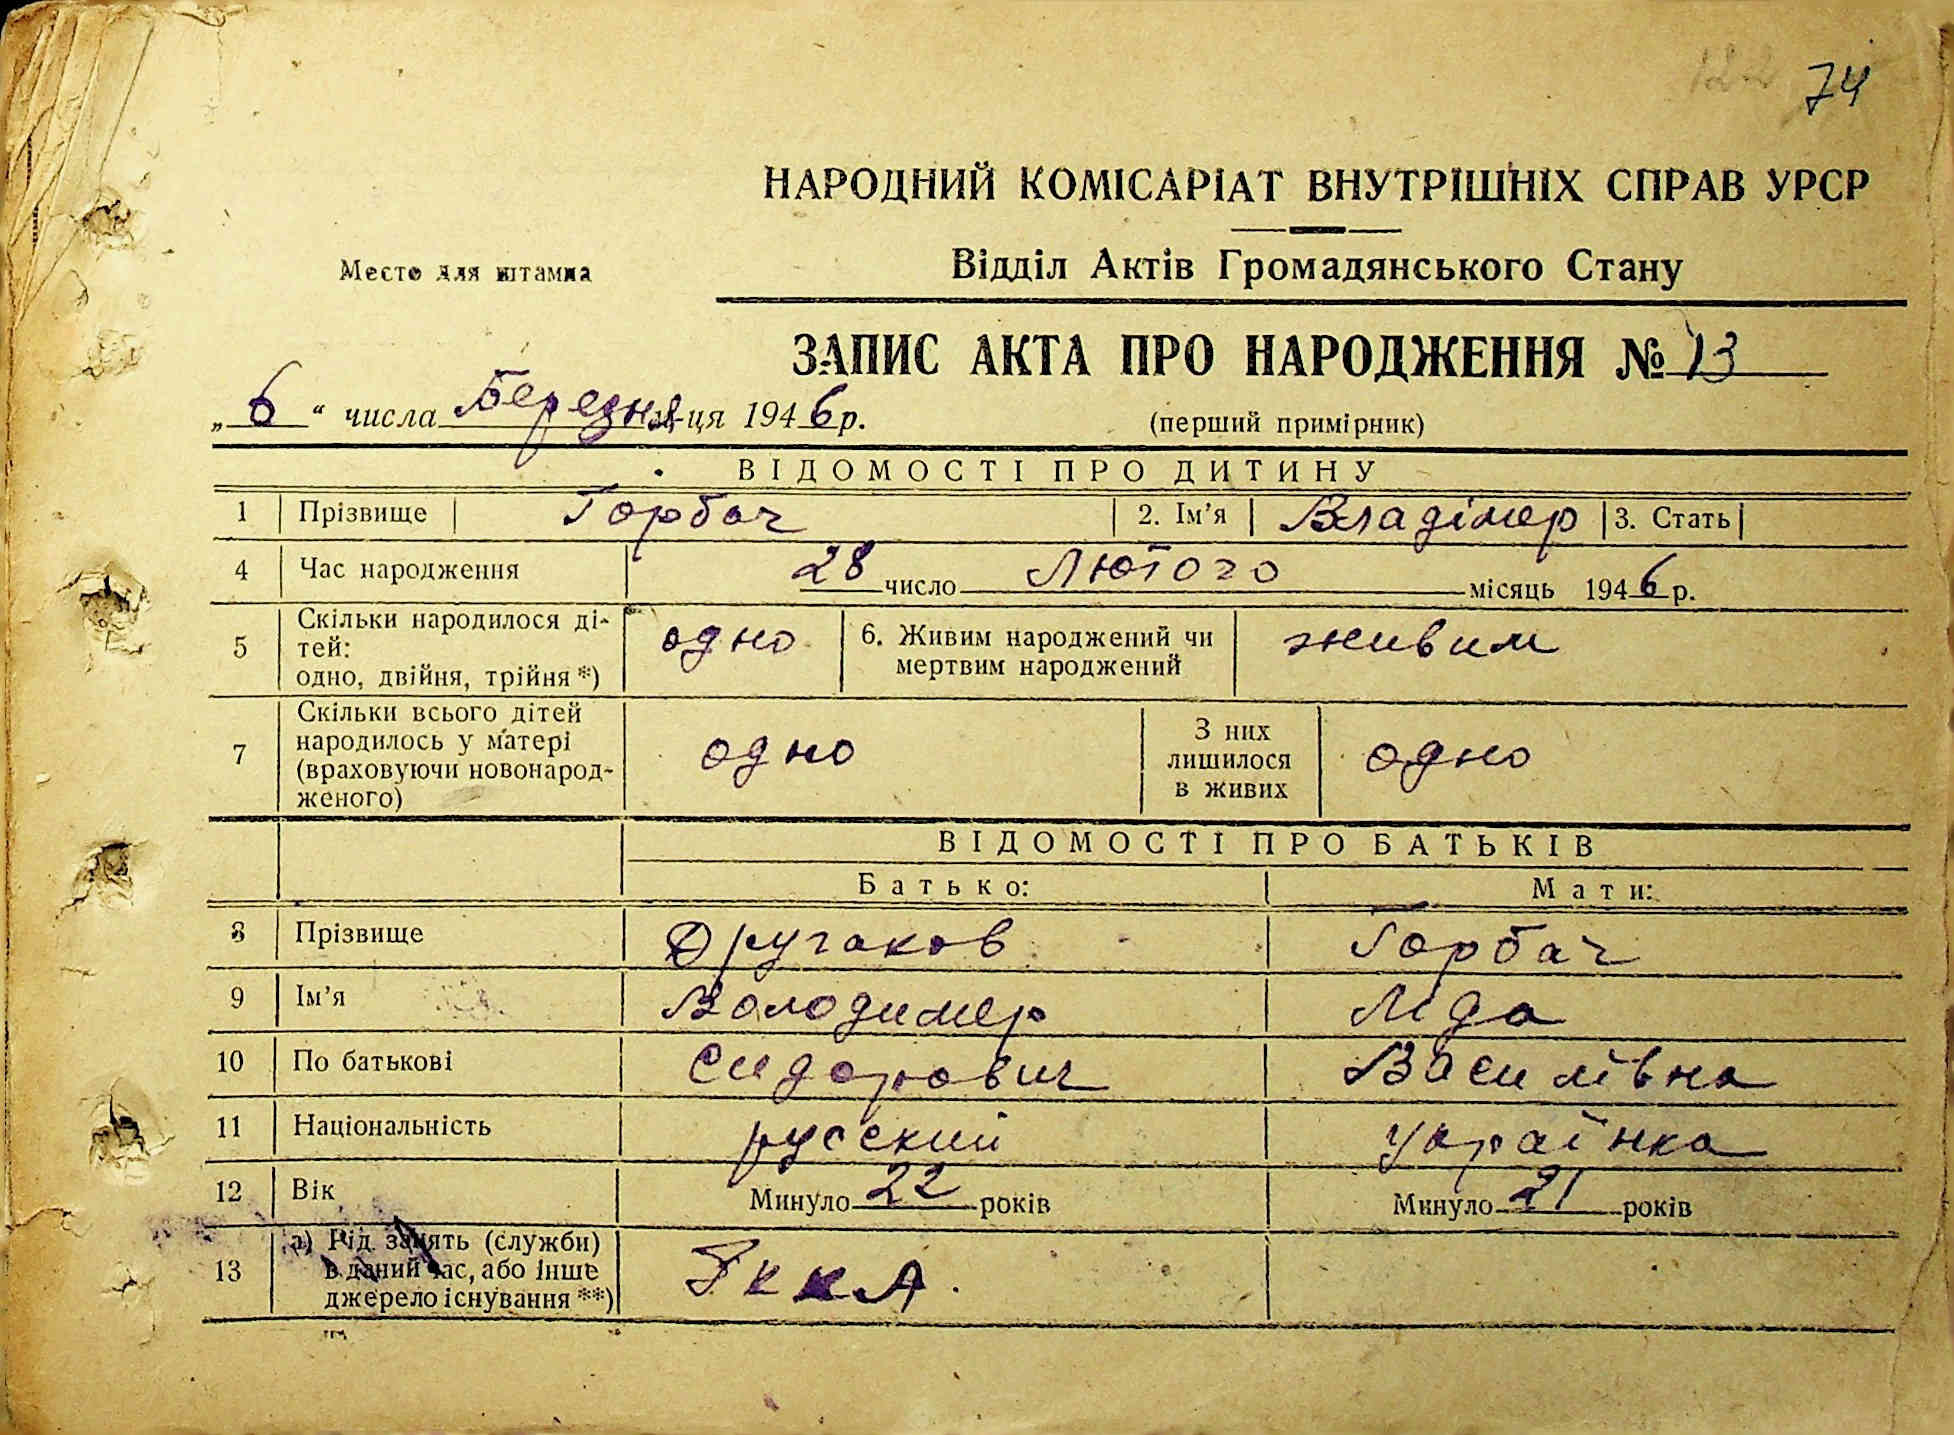 74
НАРОДНИЙ КОМІСАРІАТ ВНУТРІШНІХ СПРАВ УРСР
Место для штампа
Відділ Актів Громадянського Стану
ЗАПИС АКТА ПРО НАРОДЖЕННЯ № 13
„6“ числа Березня м-ця 1946 р.
(перший примірник)
ВІДОМОСТІ ПРО ДИТИНУ
1 Прізвище Горбач 2. Ім'я Владімер 3. Стать
4 Час народження 28 число Лютого місяць 1946 р.
5 Скільки народилося ді-
тей:
одно, двійня, трійня *) одно 6. Живим народжений чи
мертвим народжений живим
7 Скільки всього дітей
народилось у матері
(враховуючи новонарод-
женого) одно З них
лишилося
в живих одно
ВІДОМОСТІ ПРО БАТЬКІВ
Батько: Мати:
8 Прізвище Другаков Горбач
9 Ім'я Володимер Ліда
10 По батькові Сидорович Василівна
11 Національність русский українка
12 Вік Минуло 22 років Минуло 21 років
13 а) Рід занять (служби)
в даний час, або інше
джерело існування **) РККА.